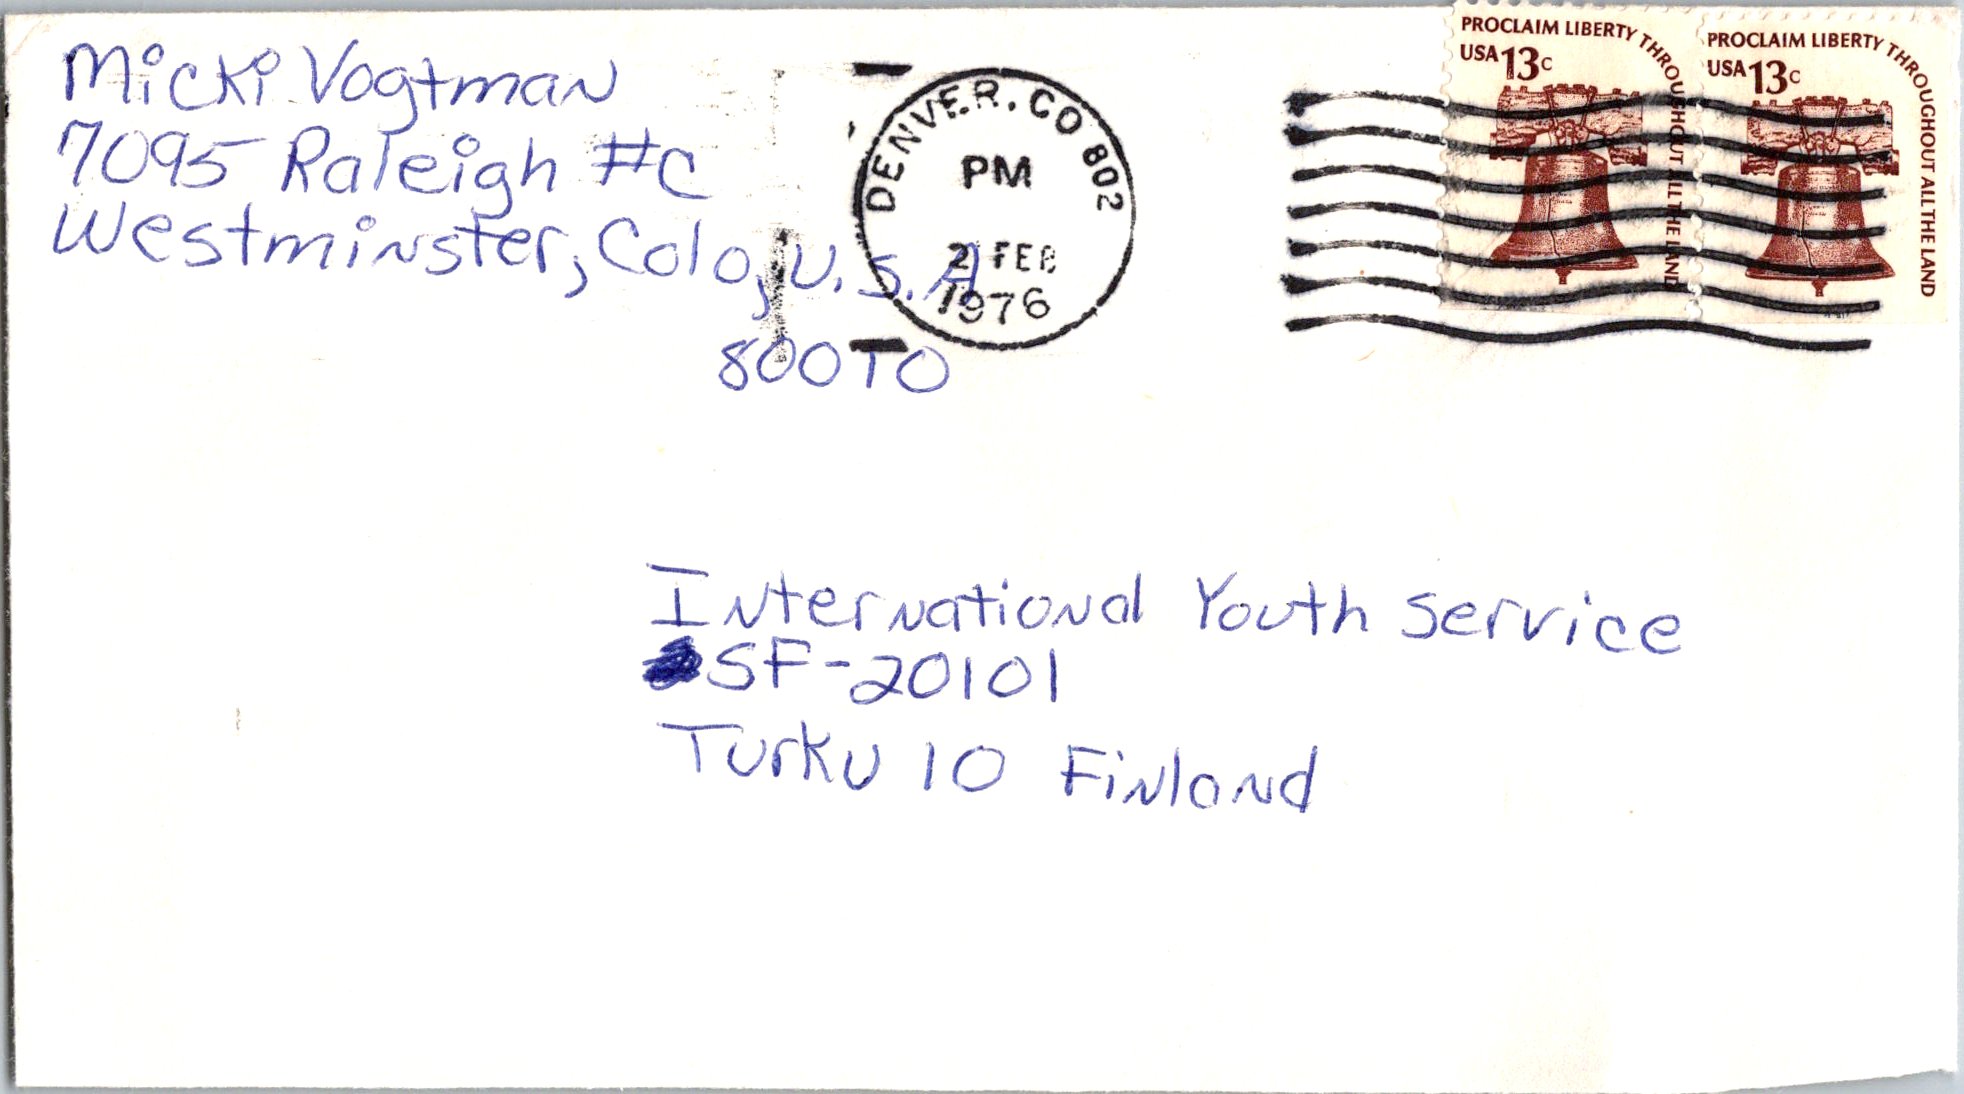 Micki Vogtman
7095 Raleigh #C
Westminster, Colo, U.S.A
80030
DENVER. CO 802
PM
2 FEB
1976
PROCLAIM LIBERTY THROUGHOUT ALL THE LAND
USA 13c
PROCLAIM LIBERTY THROUGHOUT ALL THE LAND
USA 13c
International Youth Service
SF-20101
Turku 10 Finland